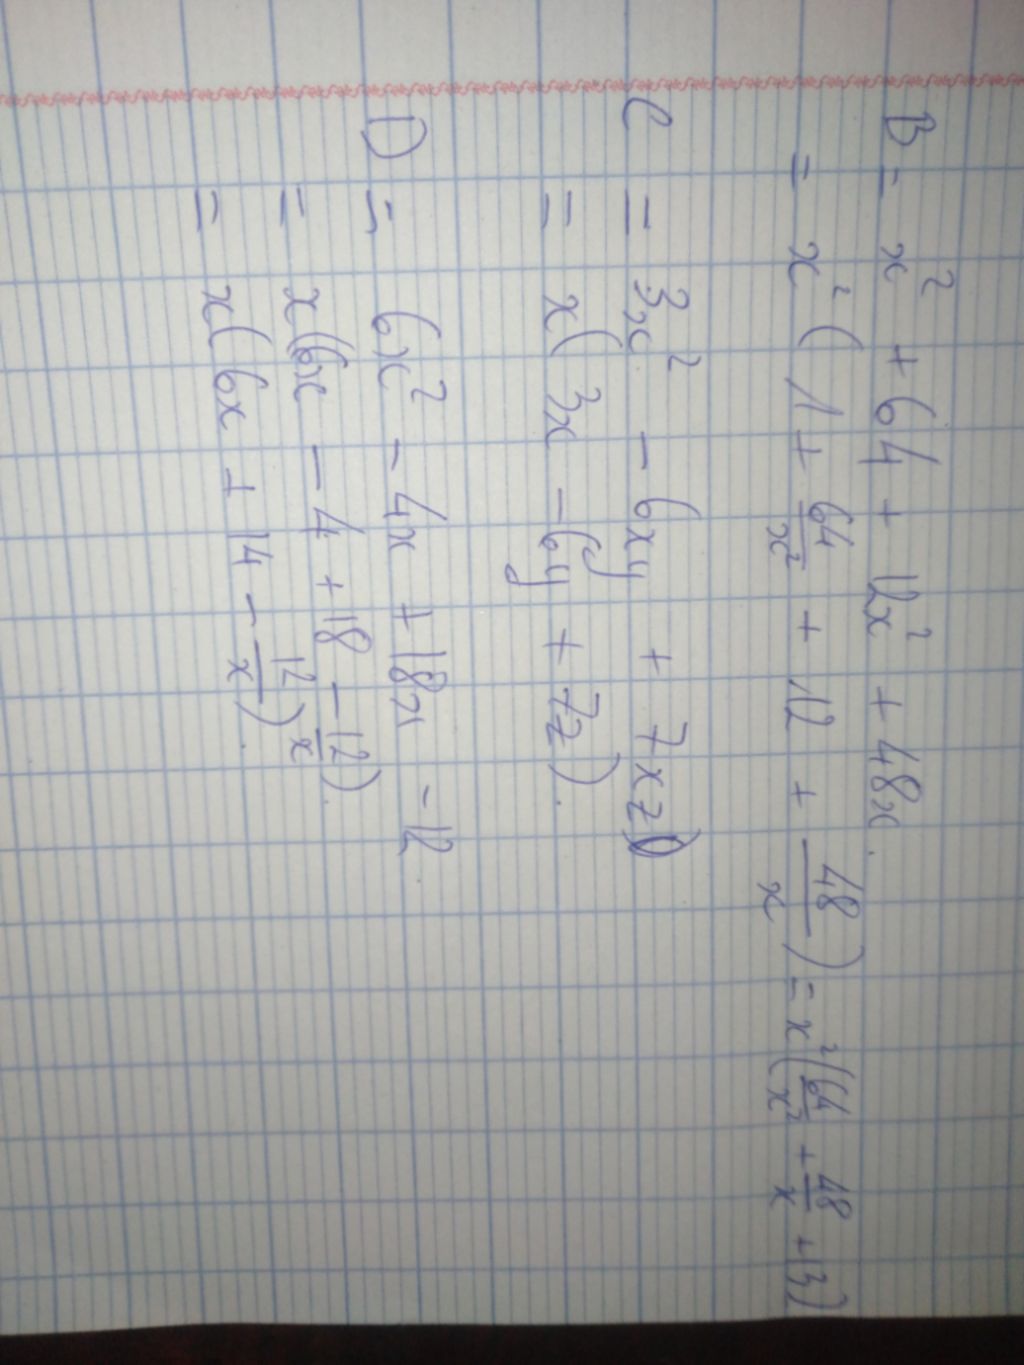 B = x² + 64 + 12x² + 48x.
= x² ( 1 + 64/x² + 12 + 48/x ) = x² ( 64/x² + 48/x + 13 )
C = 3x² - 6xy + 7xz
= x( 3x - 6y + 7z ).
D = 6x² - 4x + 18x - 12
= x(6x - 4 + 18 - 12/x).
= x( 6x + 14 - 12/x ).